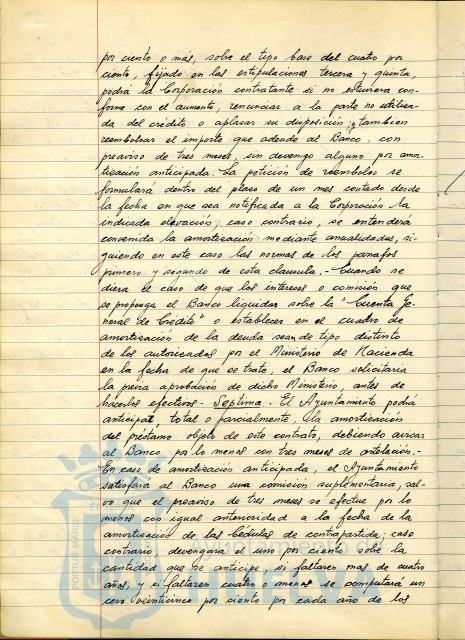 por ciento o más, sobre el tipo base del cuatro por
ciento, fijado en las estipulaciones tercera y quinta,
podrá la Corporación contratante si no estuviera con-
forme con el aumento, renunciar a la parte no utiliza-
da del crédito o aplazar su disposición y tambien
reembolsar el importe que adeude al Banco, con
preaviso de tres meses, sin devengo alguno por amor-
tización anticipada. La petición de reembolso se
formulará dentro del plazo de un mes contado desde
la fecha en que sea notificada a la Corporación la
indicada elevación; caso contrario, se entenderá
convenida la amortización mediante anualidades, si-
guiendo en este caso las normas de los parrafos
primero y segundo de esta clausula.- Cuando se
diera el caso de que los intereses o comisión que
se proponga el Banco liquidar sobre la "Cuenta Ge-
neral de Crédito" o establecer en el cuadro de
amortización de la deuda sean de tipo distinto
de los autorizados por el Ministerio de Hacienda
en la fecha de que se trate, el Banco solicitaria
la previa aprobación de dicho Ministerio, antes de
hacerlos efectivos.- Septima.- El Ayuntamiento podrá
anticipar, total o parcialmente, la amortización
del préstamo objeto de este contrato, debiendo avisar
al Banco por lo menos con tres meses de antelación.-
En caso de amortización anticipada, el Ayuntamiento
satisfará al Banco una comisión suplementaria, sal-
vo que el preaviso de tres meses se efectue por lo
menos con igual anterioridad a la fecha de la
amortización de las Cédulas de contrapartida; caso
contrario devengará el uno por ciento sobre la
cantidad que se anticipe, si faltaren mas de cuatro
años, y si faltaren cuatro o menos se computará un
cero veinticinco por ciento por cada año de los
PORTUS MARIS